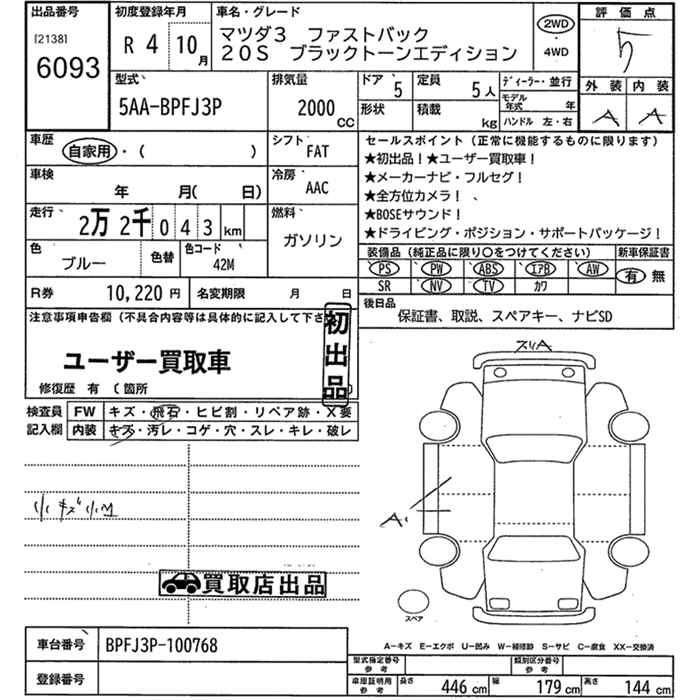 出品番号 初度登録年月 車名・グレード 2WD ・ 4WD 評価点
[2138] 6093 R 4 10月 マツダ3 ファストバック 5
20S ブラックトーンエディション
外装 内装
A A
型式 5AA-BPFJ3P 排気量 2000 CC ドア 5 定員 5人 ディーラー・並行
形状 積載 kg モデル年式 年
ハンドル 左・右
車歴 自家用・( ) シフト FAT セールスポイント(正常に機能するものに限ります)
★初出品!★ユーザー買取車!
車検 年 月( 日) 冷房 AAC ★メーカーナビ・フルセグ!
★全方位カメラ! 、
走行 2万 2千 0 4 3 km 燃料 ガソリン ★BOSEサウンド!
★ドライビング・ポジション・サポートパッケージ!
色 ブルー 色替 色コード 42M 装備品(純正品に限り○をつけてください) 新車保証書
PS PW ABS エアB AW 有 無
SR NV TV カワ
R券 10,220 円 名変期限 月 日 後日品
保証書、取説、スペアキー、ナビSD
注意事項申告欄(不具合内容等は具体的に記入して下さ
初出品
ユーザー買取車
修復歴 有 (箇所
検査員記入欄 FW キズ・飛石・ヒビ割・リペア跡・X要
内装 キズ・汚レ・コゲ・穴・スレ・キレ・破レ
小キズ小凹
買取店出品
ズリA
A1
スペア
車台番号 BPFJ3P-100768
A−キズ E−エクボ U−凹み W−補修跡 S−サビ C−腐食 XX−交換済
登録番号 型式指定番号参考 類別区分番号参考
車庫証明用参考 長さ 446 cm 幅 179 cm 高さ 144 cm